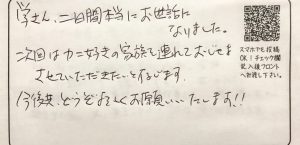 学さん、二日間本当にお世話に
なりました。
次回はカニ好きの家族も連れておじゃま
させていただきたいと存じます。
今後共、どうぞよろしくお願いいたします!!
スマホでも投稿
OK!チェック欄
記入後フロント
へお渡し下さい。